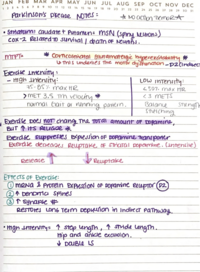 JAN FEB MAR APR MAY JUN JUL AUG SEP OCT NOV DEC
Parkinsons Disease NOTES:
• striatum: caudate & Putamen: MSN (spiny neurons)
COX-2 related to survival / death of neurons.
MPTP* * Corticostriatal Glutamatergic Hyperexcitability *
this underlies the motor dysfunction - D2 (indirect)
Exercise intensity:
- High intensity:
LOW intensity:
max HR
max HR
> MET 3.5 min velocity *
<3 METS
normal: run or running, person.
Balance, strength
stretching
Exercise does NOT change the total amount of dopamine,
BUT ↑ its release *
Exercise suppresses expression of dopamine transporter
Exercise decreases reuptake of (Total) dopamine. (intensive)
Release ↑ ↓ Reuptake
Effects of Exercise:
① mRNA & protein expression of dopamine receptor (D2)
② ↑ dendritic spines
③ ↑ dynamic
Restores long term depression in indirect pathway.
• High intensity: ↑ step length, ↑ stride length.
hip and ankle excursion.
↓ double LS